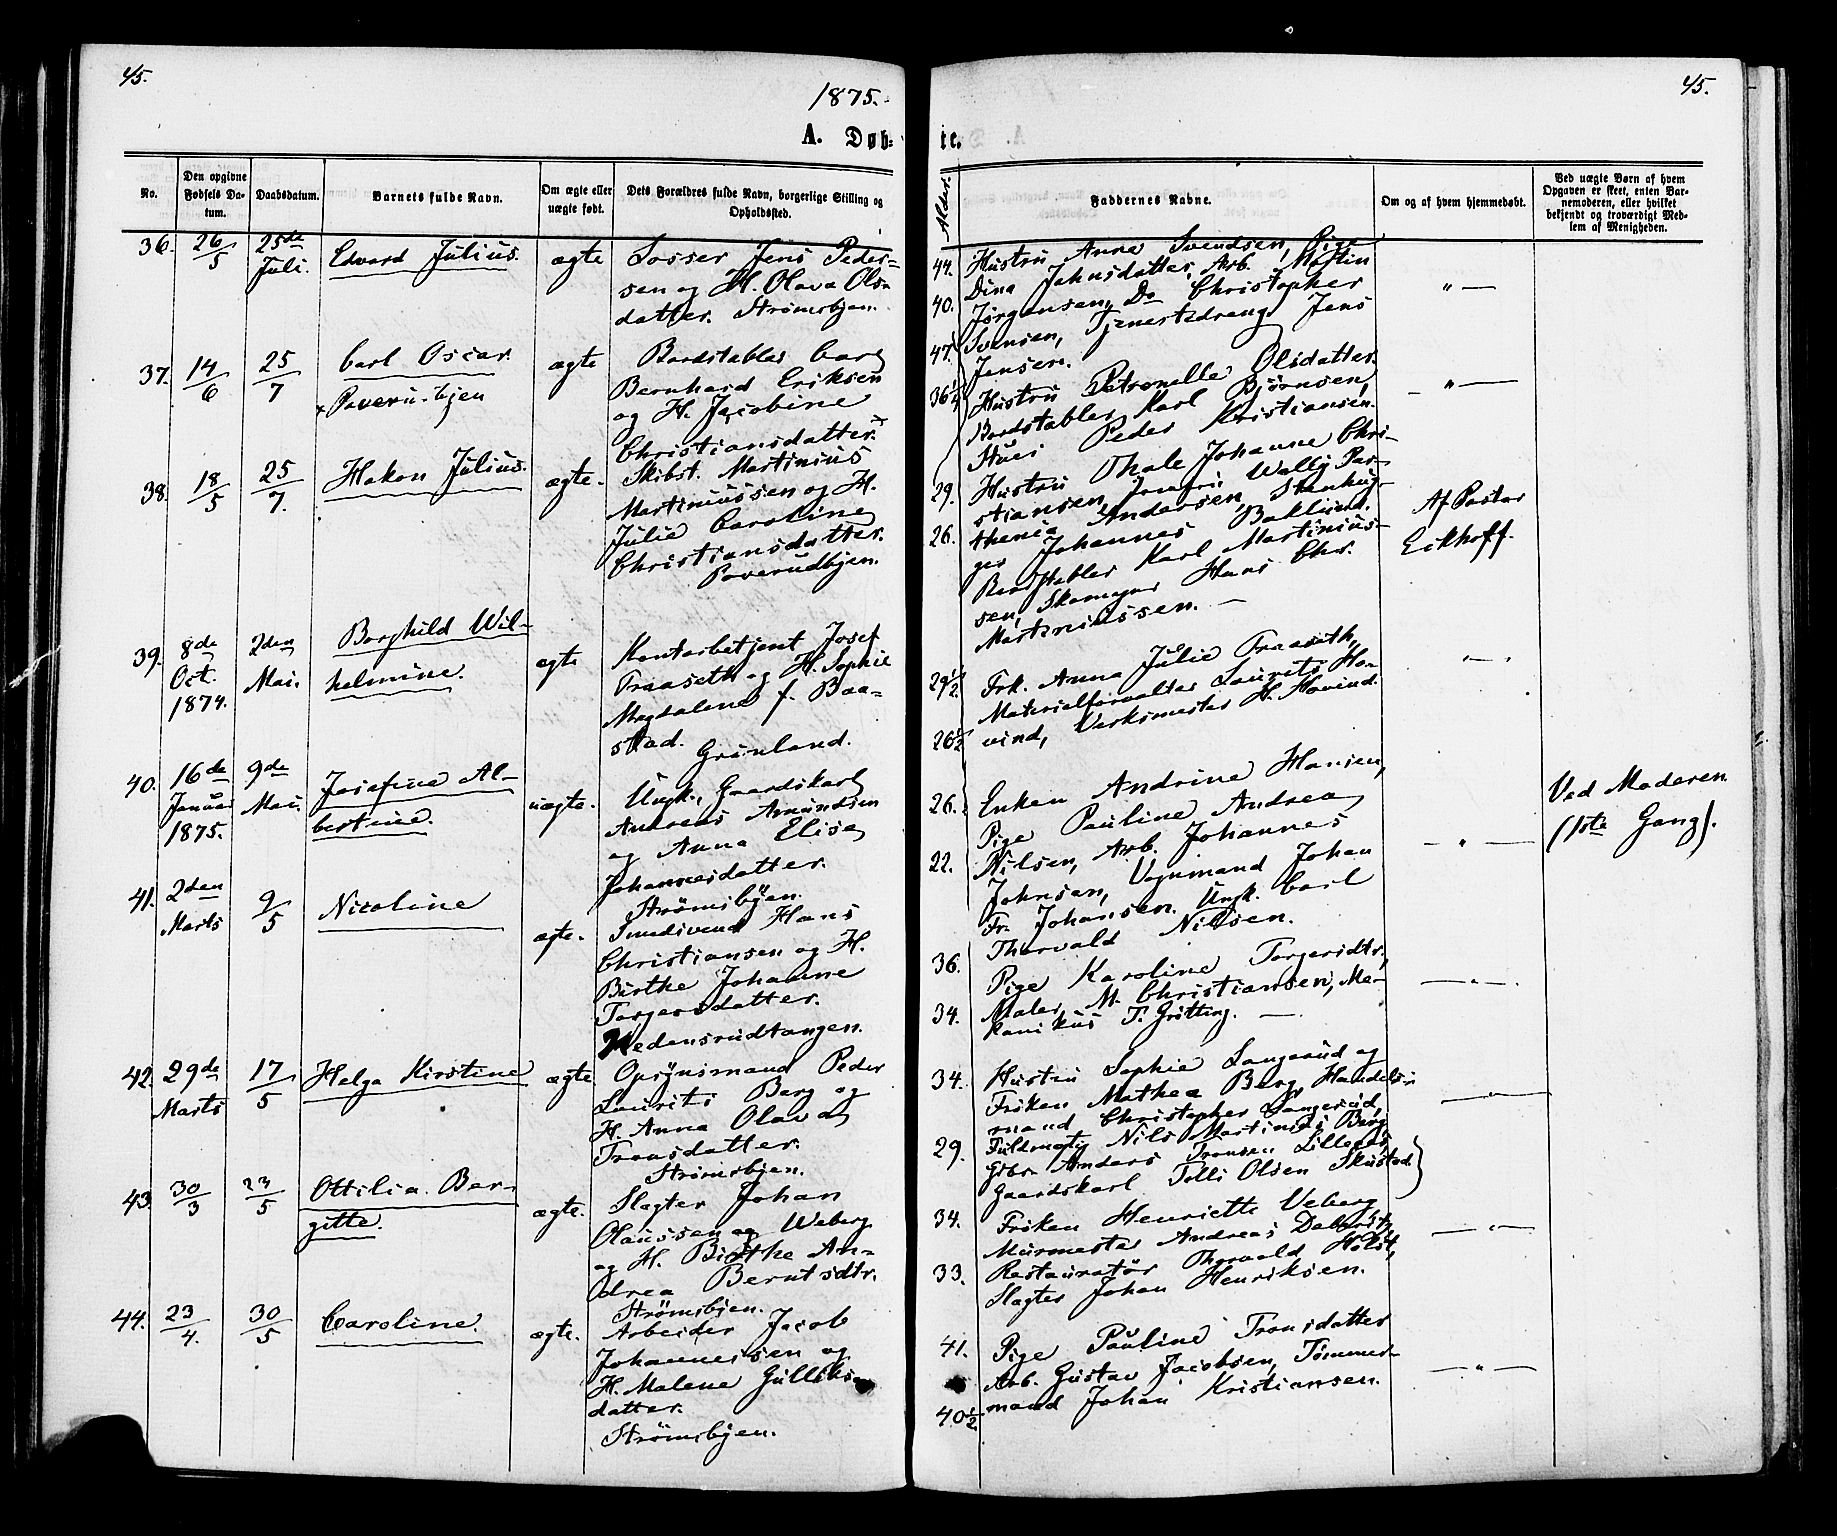 45.
1875.
A. Døb-
No.
Den opgivne Fødsels Datum.
Daabsdatum.
Barnets fulde Navn.
Om ægte eller uægte født.
Dets Forældres fulde Navn, borgerlige Stilling og Opholdssted.
36. 26/5 25de Juli. Edvard Julius. ægte
Losser Jens Peder-
sen og H. Olava Ols-
datter. Strømsbjen.
37. 14/6 25/7 Carl Oscar. ægte
Poverudbjen
Bordstabler Carl
Bernhard Eriksen
og H. Jacobine
Christiansdatter.
38. 18/5 25/7. Hakon Julius. ægte.
Skibst. Martinius
Martiniussen og H.
Julie Caroline
Christiansdatter.
Poverudbjen.
39. 8de Oct. 1874. 2den Mai. Borghild Wil-
helmine. ægte
Kontorbetjent Josef
Fraaseth og H. Sophie
Magdalene f. Baa-
stad. Grønland.
40. 16de Januar 1875. 9de Mai. Josefine Al-
bertine. uægte.
Ungk., Gaardskarl
Andreas Amundsen
og Anna Elise
Johannesdatter.
Strømsbjen.
41. 2den Marts 9/5 Nicoline ægte.
Smedsvend Hans
Christiansen og H.
Birthe Johanne
Torgersdatter.
Hedensrudtangen.
42. 29de Marts 17/5 Helga Kirstine ægte
Opsynsmand Peder
Laurits Berg og
H. Anna Olava
Tronsdatter.
Strømsbjen.
43. 30/3 23/5 Ottilia Ber-
gitte. ægte.
Slagter Johan
Olaussen og Weberg
og H. Birthe An-
drea Berntsdtr.
Strømsbjen.
44. 23/4. 30/5 Caroline. ægte.
Arbeider Jacob
Johannesen og
H. Malene Gulliks-
datter.
Strømsbjen.
45.
te.
Alder.
Faddernes Navne.
Om og af hvem hjemmedøbt.
Ved uægte Børn af hvem
Opgaven er skeet, enten Bar-
nemoderen, eller hvilket
bekjendt og troværdigt Med-
lem af Menigheden.
44. Hustru Anna Svendsen, Pige
Dina Johnsdatter, Arb. Martin
40. Jørgensen, Do Christopher
Svensen, Tjenestedreng Jens
47. Jensen.
36 1/4 Hustru Petronelle Olsdatter.
Bordstabler Karl Bjørnsen,
Peder Kristiansen.
29. Hustru Thale Johanne Chri-
stiansen, Jomfru Wally Par-
26. thenia Andersen, Stenhug-
ger Johannes Baklund.
Bordstabler Karl Martinius-
sen, Skomager Hans Chr.
Martiniussen.
Af Pastor
Eckhoff.
29 1/2. Frk. Anna Julie Fraaseth,
Materialforvalter Laurits Ho-
26 1/2 vind, Værksmester H. Hovind.
26. Enken Andrine Hansen,
Pige Pauline Andrea
22. Nilsen, Arb. Johannes
Johnsen, Vognmand Johan
Fr. Johansen. Ungk. Carl
Thorvald Nilsen.
Ved Moderen
(1ste Gang).
36. Pige Karoline Torgersdtr,
Maler M. Christiansen, Me-
34. kanikus T. Grøtting.
34. Hustru Sophie Langerud og
Frøken Mathea Berg, Handels-
mand Christopher Langerud,
Fuldmægtig Nils Martinius Berg,
29. Gbr. Anders Tronsen Lillegaard,
Gaardskarl Tolli Olsen Skustad
34. Frøken Henriette Veberg
Murmester Andreas Deberitz,
33. Restauratør Thorvald Holst,
Slagter Johan Henriksen.
41. Pige Pauline Tronsdatter
Arb. Gustav Jacobsen, Tømmer-
40 1/2 mand Johan Kristiansen.